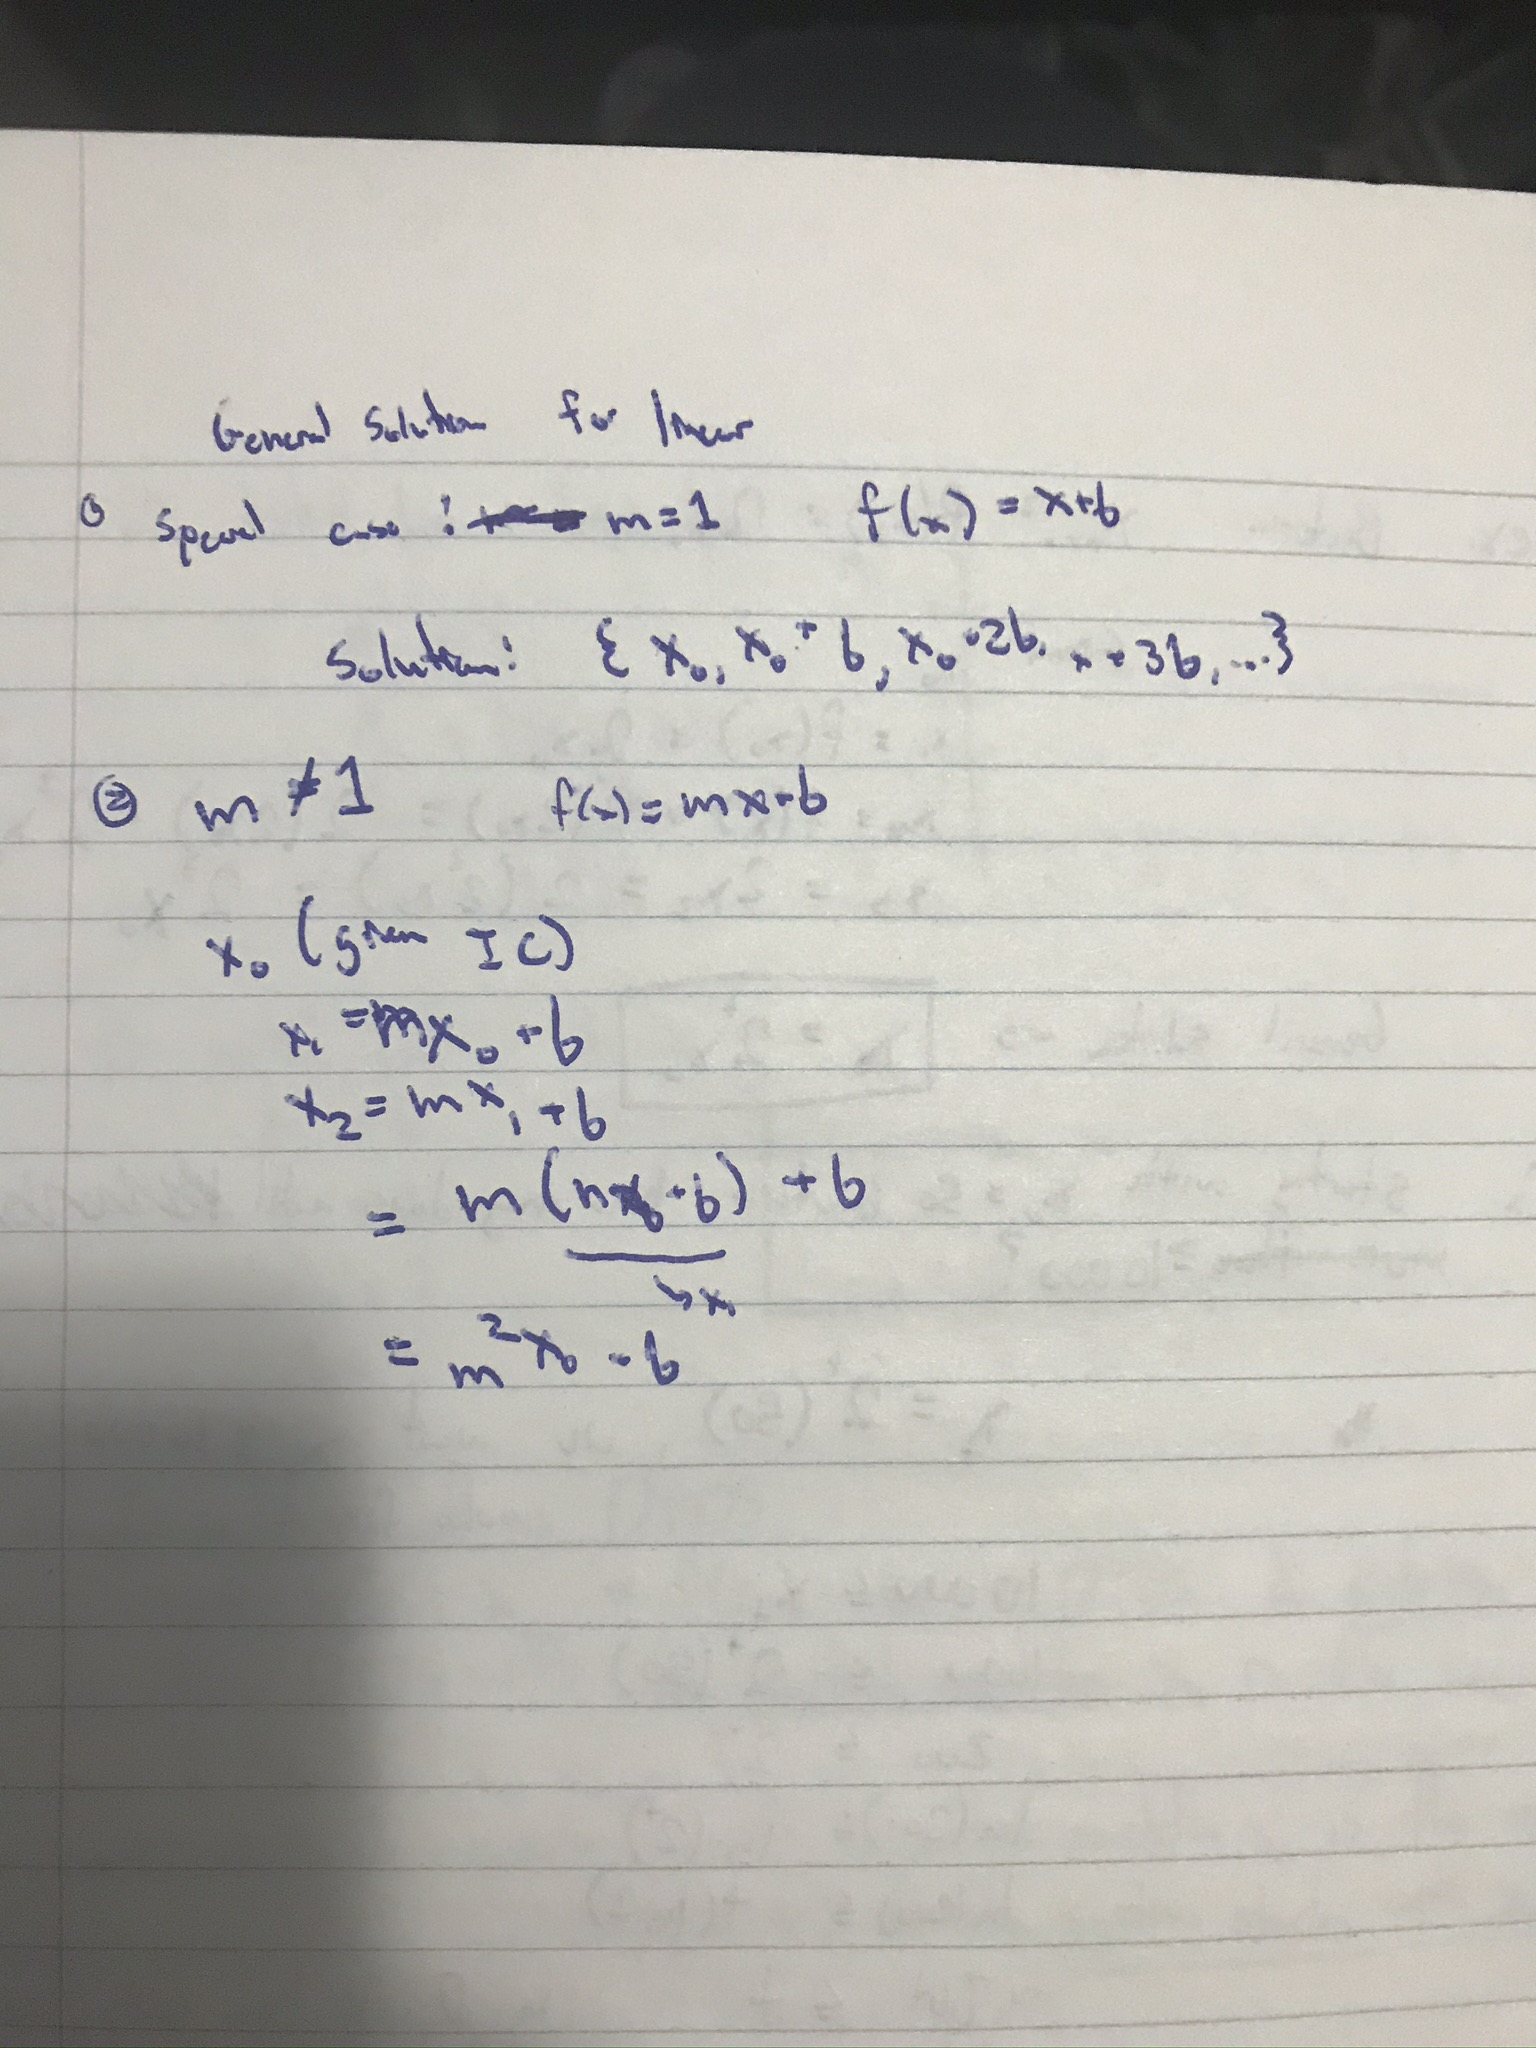 General Solution for linear
① Special case: m=1 f(x) = x+b
Solution: { x₀, x₀ + b, x₀+2b, x+3b, ...}
② m ≠ 1 f(x) = mx+b
x₀ (given IC)
x₁ = mx₀ + b
x₂ = mx₁ + b
= m(mx₀+b) + b
↳x₁
= m²x₀ + b